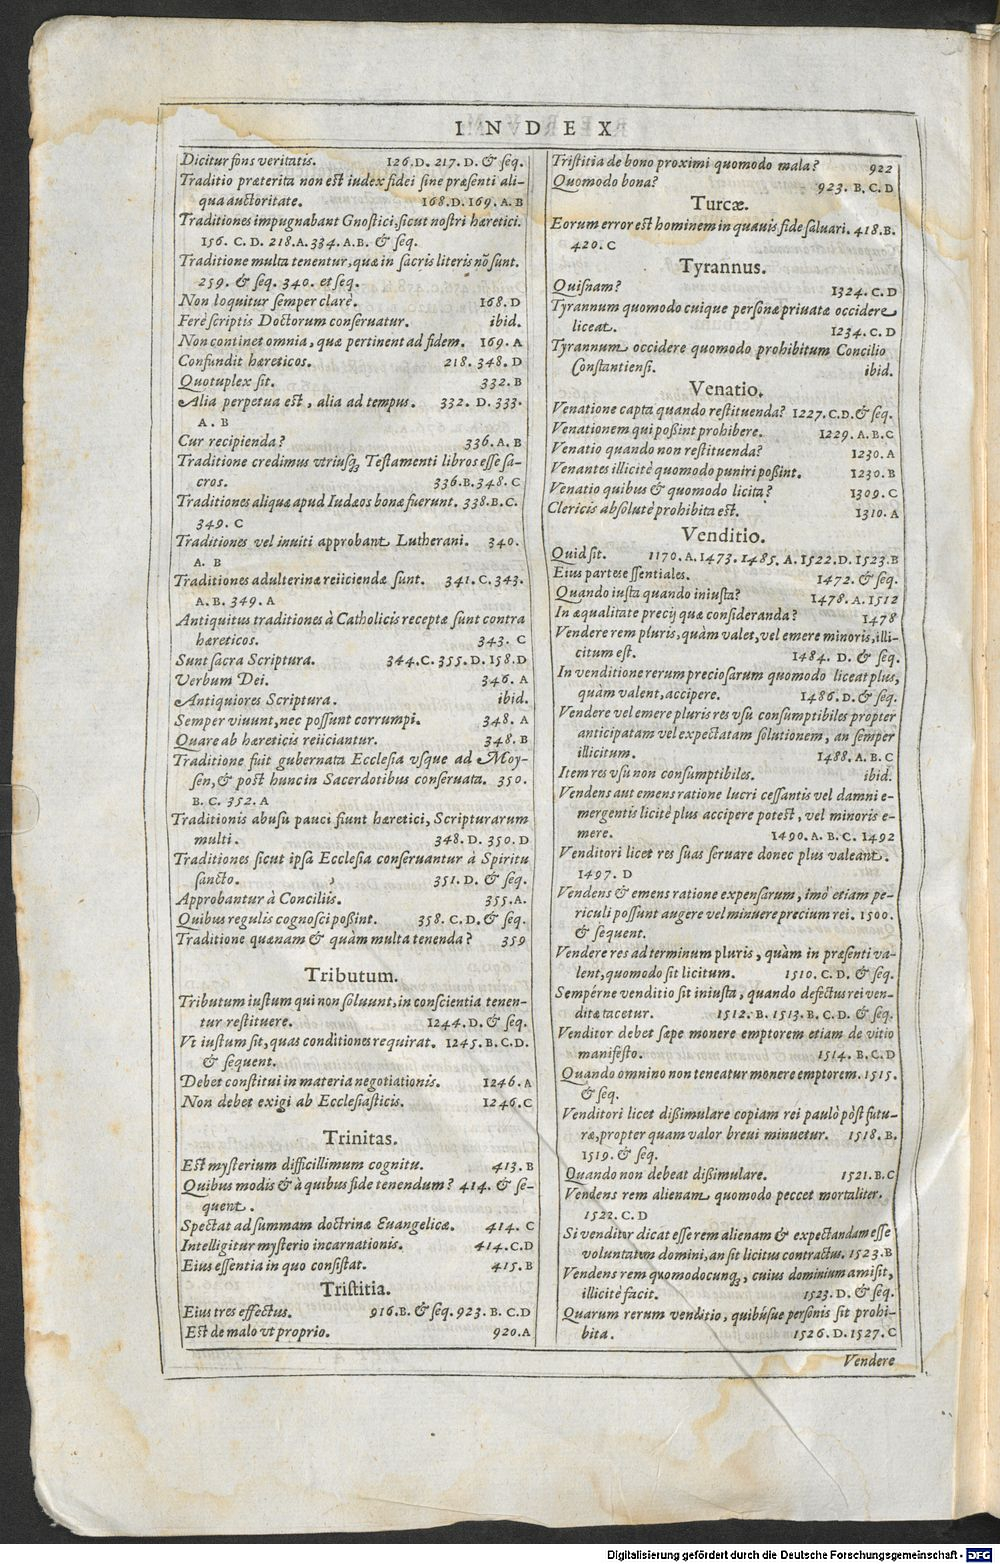 INDEX
Dicitur fons veritatis. 126.D. 217.D. & seq.
Traditio præterita non est iudex fidei sine præsenti ali-
qua auctoritate. 168.D.169.A.B
Traditiones impugnabant Gnostici, sicut nostri hæretici.
156. C. D. 218.A. 334. A.B. & seq.
Traditione multa tenentur, quæ in sacris literis nõ sunt.
259. & seq. 340. et seq.
Non loquitur semper clarè. 168.D
Ferè scriptis Doctorum conseruatur. ibid.
Non continet omnia, quæ pertinent ad fidem. 169.A
Confundit hæreticos. 218. 348. D
Quotuplex sit. 332.B
Alia perpetua est, alia ad tempus. 332. D. 333.
A. B
Cur recipienda? 336.A.B
Traditione credimus vtriusq́; Testamenti libros esse sa-
cros. 336.B.348.C
Traditiones aliquæ apud Iudæos bonæ fuerunt. 338.B.C.
349. C
Traditiones vel inuiti approbant Lutherani. 340.
A. B
Traditiones adulterinæ reiiciendæ sunt. 341.C.343.
A.B. 349.A
Antiquitus traditiones à Catholicis receptæ sunt contra
hæreticos. 343. C
Sunt sacra Scriptura. 344.C. 355.D.158.D
Verbum Dei. 346.A
Antiquiores Scriptura. ibid.
Semper viuunt, nec possunt corrumpi. 348. A
Quare ab hæreticis reiiciantur. 348.B
Traditione fuit gubernata Ecclesia vsque ad Moy-
sen, & post hunc in Sacerdotibus conseruata. 350.
B. C. 352.A
Traditionis abusu pauci fiunt hæretici, Scripturarum
multi. 348. D. 350.D
Traditiones sicut ipsa Ecclesia conseruantur à Spiritu
sancto. 351.D. & seq.
Approbantur à Conciliis. 355.A.
Quibus regulis cognosci poßint. 358. C.D.& seq.
Traditione quænam & quàm multa tenenda? 359
Tributum.
Tributum iustum qui non soluunt, in conscientia tenen-
tur restituere. 1244.D.& seq.
Vt iustum sit, quas conditiones requirat. 1245.B.C.D.
& sequent.
Debet constitui in materia negotiationis. 1246.A
Non debet exigi ab Ecclesiasticis. 1246.C
Trinitas.
Est mysterium difficillimum cognitu. 413.B
Quibus modis & à quibus fide tenendum? 414. & se-
quent.
Spectat ad summam doctrinæ Euangelicæ. 414. C
Intelligitur mysterio incarnationis. 414.C.D
Eius essentia in quo consistat. 415.B
Tristitia.
Eius tres effectus. 916.B. & seq. 923. B. C.D
Est de malo vt proprio. 920.A
Tristitia de bono proximi quomodo mala? 922
Quomodo bona? 923. B.C.D
Turcæ.
Eorum error est hominem in quauis fide saluari. 418.B.
420. C
Tyrannus.
Quisnam? 1324.C.D
Tyrannum quomodo cuique personæ priuatæ occidere
liceat. 1234.C.D
Tyrannum occidere quomodo prohibitum Concilio
Constantiensi. ibid.
Venatio.
Venatione capta quando restituenda? 1227.C.D.& seq.
Venationem qui poßint prohibere. 1229.A.B.C
Venatio quando non restituenda? 1230.A
Venantes illicitè quomodo puniri poßint. 1230.B
Venatio quibus & quomodo licita? 1309.C
Clericis absolutè prohibita est. 1310.A
Venditio.
Quid sit. 1170.A.1473.1485.A.1522.D.1523.B
Eius partes essentiales. 1472. & seq.
Quando iusta quando iniusta? 1478.A.1512
In æqualitate precij quæ consideranda? 1478
Vendere rem pluris, quàm valet, vel emere minoris, illi-
citum est. 1484. D. & seq.
In venditione rerum preciosarum quomodo liceat plus,
quàm valent, accipere. 1486.D.& seq.
Vendere vel emere pluris res vsu consumptibiles propter
anticipatam vel expectatam solutionem, an semper
illicitum. 1488.A.B.C
Item res vsu non consumptibiles. ibid.
Vendens aut emens ratione lucri cessantis vel damni e-
mergentis licitè plus accipere potest, vel minoris e-
mere. 1490.A.B.C. 1492
Venditori licet res suas seruare donec plus valeant.
1497. D
Vendens & emens ratione expensarum, imò etiam pe-
riculi possunt augere vel minuere precium rei. 1500.
& sequent.
Vendere res ad terminum pluris, quàm in præsenti va-
lent, quomodo sit licitum. 1510. C. D. & seq.
Sempérne venditio sit iniusta, quando defectus rei ven-
ditæ tacetur. 1512. B. 1513. B. C.D. & seq.
Venditor debet sæpe monere emptorem etiam de vitio
manifesto. 1514. B.C.D
Quando omnino non teneatur monere emptorem. 1515.
& seq.
Venditori licet dißimulare copiam rei paulò pòst futu-
ræ, propter quam valor breui minuetur. 1518.B.
1519. & seq.
Quando non debeat dißimulare. 1521.B.C
Vendens rem alienam quomodo peccet mortaliter.
1522. C.D
Si venditor dicat esse rem alienam & expectandam esse
voluntatem domini, an sit licitus contractus. 1523.B
Vendens rem quomodocunq́;, cuius dominium amisit,
illicitè facit. 1523. D. & seq.
Quarum rerum venditio, quibúsue personis sit prohi-
bita. 1526.D.1527.C
Vendere
Digitalisierung gefördert durch die Deutsche Forschungsgemeinschaft - DFG